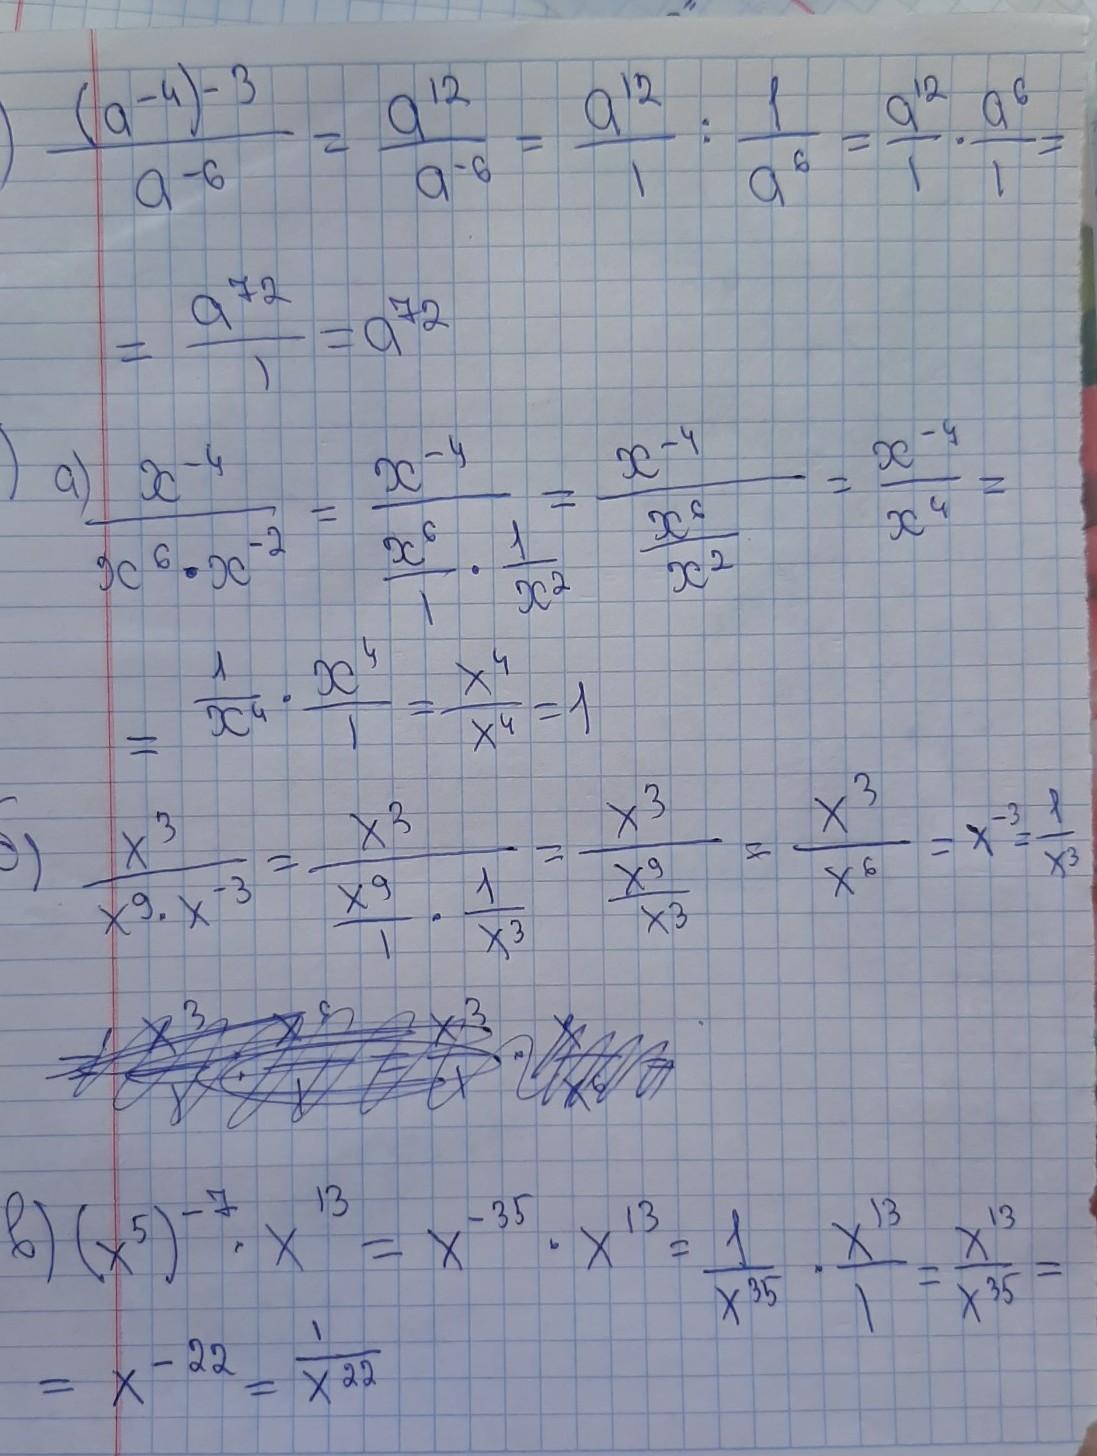 ) (a⁻⁴)⁻³ / a⁻⁶ = a¹² / a⁻⁶ = a¹²/1 : 1/a⁶ = a¹²/1 · a⁶/1 =
= a⁷²/1 = a⁷²
) а) x⁻⁴ / (x⁶ · x⁻²) = x⁻⁴ / (x⁶/1 · 1/x²) = x⁻⁴ / (x⁶/x²) = x⁻⁴/x⁴ =
= 1/x⁴ · x⁴/1 = x⁴/x⁴ = 1
б) x³ / (x⁹ · x⁻³) = x³ / (x⁹/1 · 1/x³) = x³ / (x⁹/x³) = x³/x⁶ = x⁻³ = 1/x³
в) (x⁵)⁻⁷ · x¹³ = x⁻³⁵ · x¹³ = 1/x³⁵ · x¹³/1 = x¹³/x³⁵ =
= x⁻²² = 1/x²²